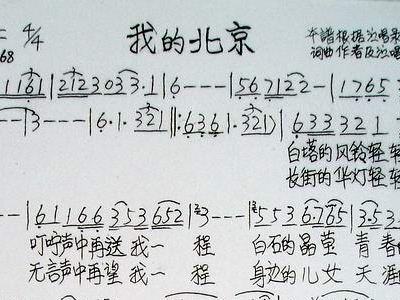 = 4/4 我的北京 本谱根据沈唱
68 词曲作者及沈唱
1161|212303 3·1|6---|567122-|1765
---|3---|6·1·321|‖:6361·321|6333321
白塔的风铃轻轻
长街的华灯轻轻
--|61166353652|3---|5536·765|3·53
叮咛声中再送我一 程 白石的晶莹 青春
无言声中再望我一 程 身边的儿女 天涯